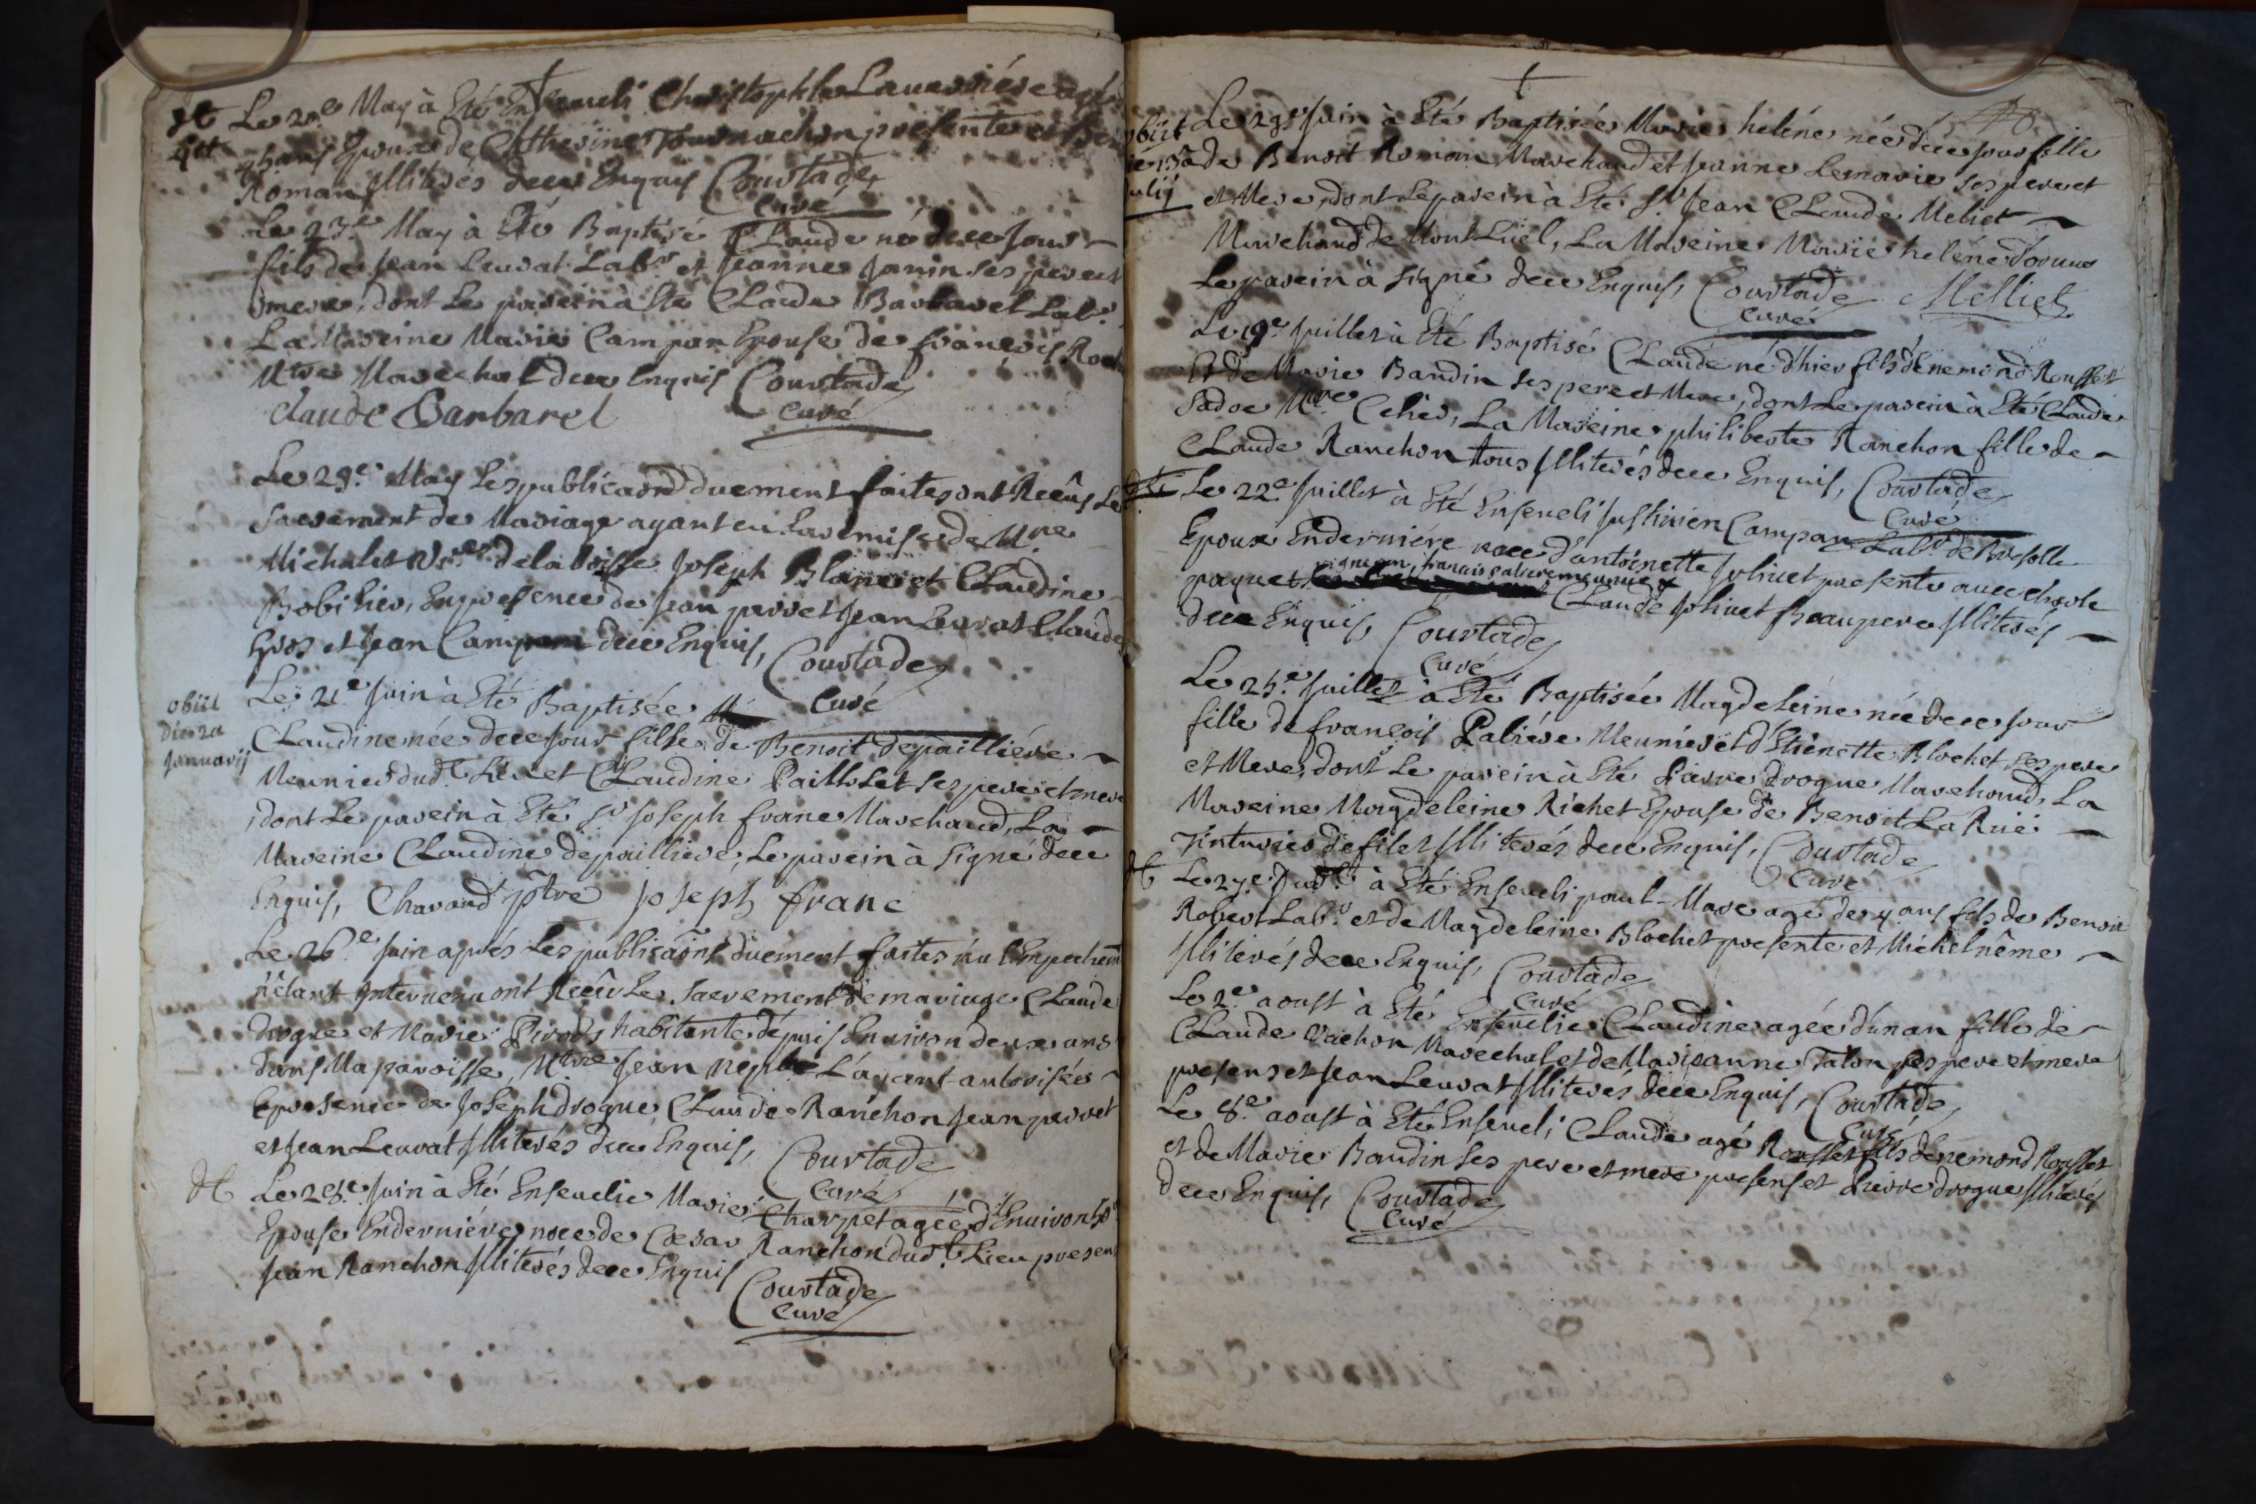 Le 20e May à Eté Enseveli Christophle Lauersiére agé
45 ans Epoux de Catherine Tournachon présente et
Roman Illiterés dece Enquis Courtade
Curé
Le 23e May à Eté Baptisé Claude né dece jour
fils de Jean Leuvat Labr et Jeanne Janin ses pere et
mere, dont Le parein à Eté Claude Barbarel Labr
La Mareine Marie Campan Epouse de françois
Mtre Marechal dece Enquis Courtade
Curé
claude Barbarel
Le 29e May Les publicaõns duement faites ont Reçûs Le
Sacrement de Mariage ayant eu La remise de Mre
Michalet de la boisse Joseph Blanc et Claudine
Bobilier, En presence de Jean pervet Jean Leuvat Claude
Gros et Jean Campan dece Enquis, Courtade
Curé
obiit
die 22a
Januarij
Le 21e Juin à Eté Baptisée
Claudine née dece jour fille de Benoit depailliére
Meunier dudt Lieu et Claudine Paillet ses pere et mere
dont Le parein à Eté Sr Joseph franc Marchand, La
Mareine Claudine depailliere, Le parein à Signé dece
Enquis, Chavand ptre joseph franc
Le 26e Juin aprés Les publicaõns duement faites nul Empechemt
n'étant Intervenu ont Reçû Le Sacrement de mariage Claude
drogue et Marie Pivods habitante depuis Environ deux ans
dans Ma paroisse, Mtre Jean L'ayant autorisée
Epresence de Joseph drogue Claude Ranchon Jean pervet
et Jean Leuvat Illiterés dece Enquis, Courtade
Curé
Le 28e Juin à Eté Ensevelie Marie Charpet agée d'Environ 50
Epouse En derniére noce de Cæsar Ranchon dudt Lieu presens
Jean Ranchon Illiterés dece Enquis Courtade
Curé
obiit
Le 29e Juin à Eté Baptisée Marie heléne née dece jour fille
de Benoit Romain Marchand et Jeanne Lemarie ses pere et
et Mere, dont Le parein à Eté Sr Jean Claude Meliet
Marchand de Mont Luël, La Mareine Marie heléne
Le parein à Signé dece Enquis, Courtade Melliet
Curé
Le 19e Juillet à Eté Baptisé Claude né d'hier fils d'Enemond Rousset
Et de Marie Baudin Ses pere et Mere, dont Le parein à Eté Claude
Sadoc Mtre La Mareine philiberte Ranchon fille de
Claude Ranchon tous Illiterés dece Enquis, Courtade
Curé
Le 22e Juillet à Eté Enseveli Justinien Campan Labr de Bresolle
Epoux En derniére noce d'antoinette Jolivet presente avec
paquet vigneron, françois Claude Jolivet Beaupere Illiterés
dece Enquis, Courtade
Curé
Le 25e Juillet à Eté Baptisée Magdeleine née dece jour
fille de françois Paliére Meunier et d'Etienette Blochet, ses pere
et Mere, dont Le parein à Eté Pierre drogue Marchand, La
Mareine Magdeleine Richet Epouse de Benoit La Ruë
Tinturier de filet Illiterés dece Enquis, Courtade
Curé
Le 27e dudt à Eté Enseveli paul-Marc agé de 4 ans fils de Benoit
Robert Labr et de Magdeleine Blochet presente et Michel nême
Illiterés dece Enquis, Courtade
Curé
Le 2e aoust à Eté Ensevelie Claudine agée d'un an fille de
Claude Vachon Marechal et de Marieanne Talon ses pere et mere
presens et Jean Leuvat Illiteres dece Enquis, Courtade
Curé
Le 8e aoust à Eté Enseveli Claude agé Rousset fils d'Enemond Rousset
et de Marie Baudin Ses pere et mere presens et Pierre drogue Illiterés
dece Enquis, Courtade
Curé